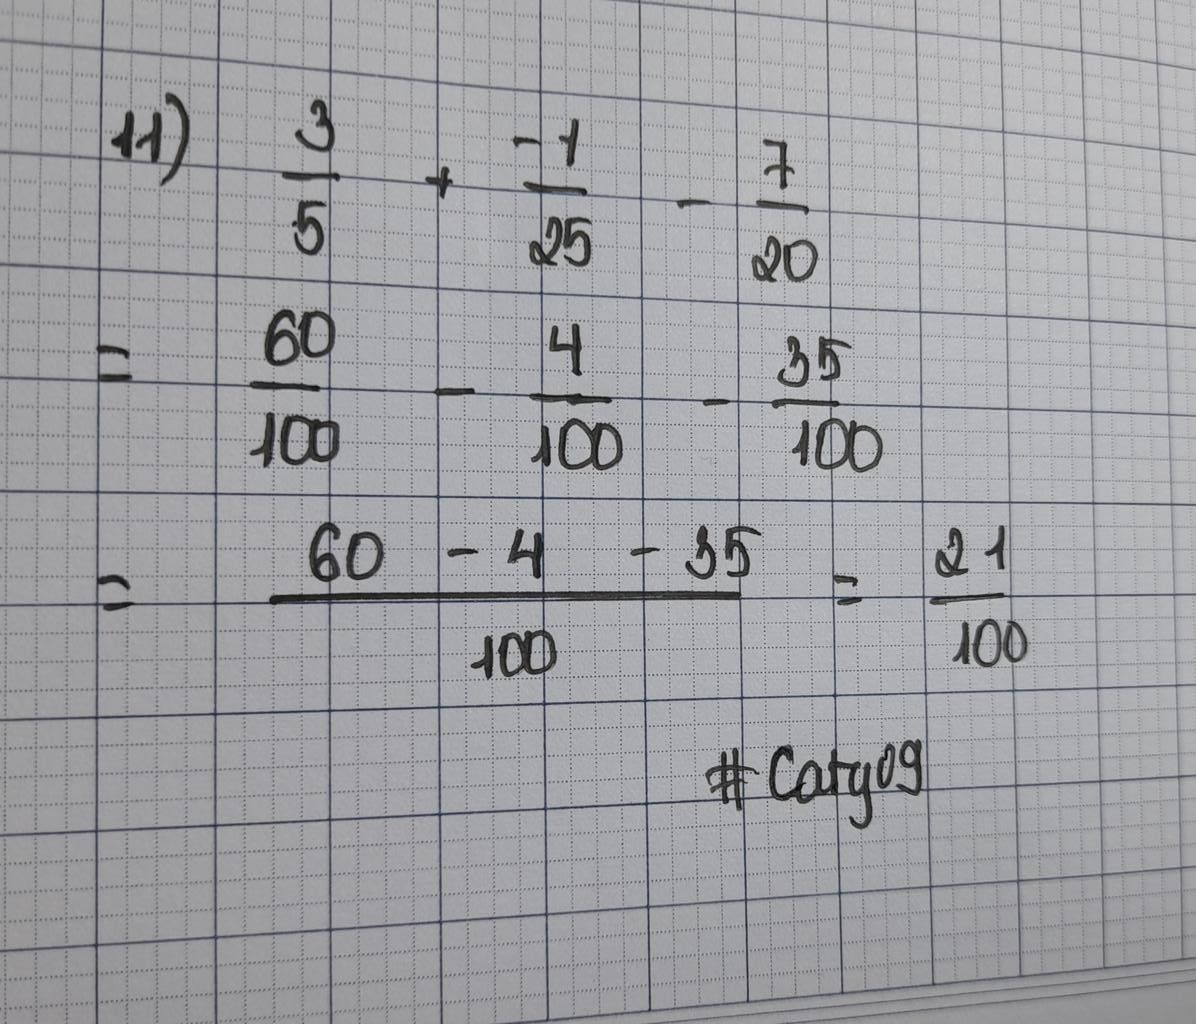 11) 3/5 + -1/25 - 7/20
= 60/100 - 4/100 - 35/100
= 60 - 4 - 35/100 = 21/100
# Caty09